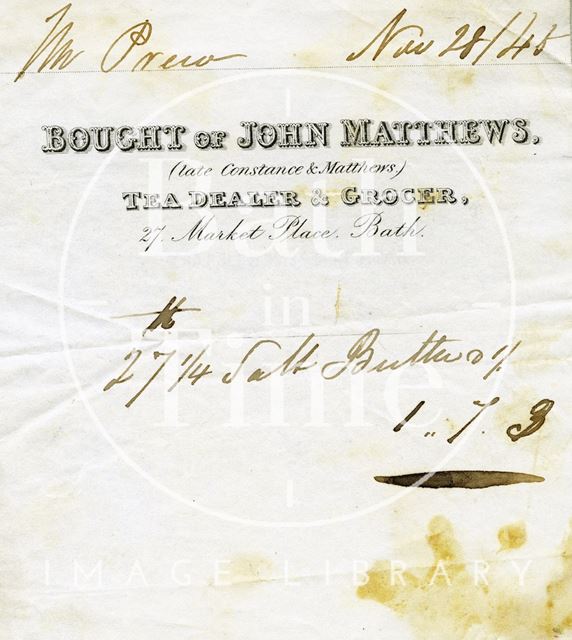 Mr Prew Nov 28/45
BOUGHT OF JOHN MATTHEWS,
(late Constance & Matthews)
TEA DEALER & GROCER,
27. Market Place. Bath.
lb
27 1/4 Salt Butter 1/
1 .. 7. 3
Bath
in
Time
IMAGE LIBRARY